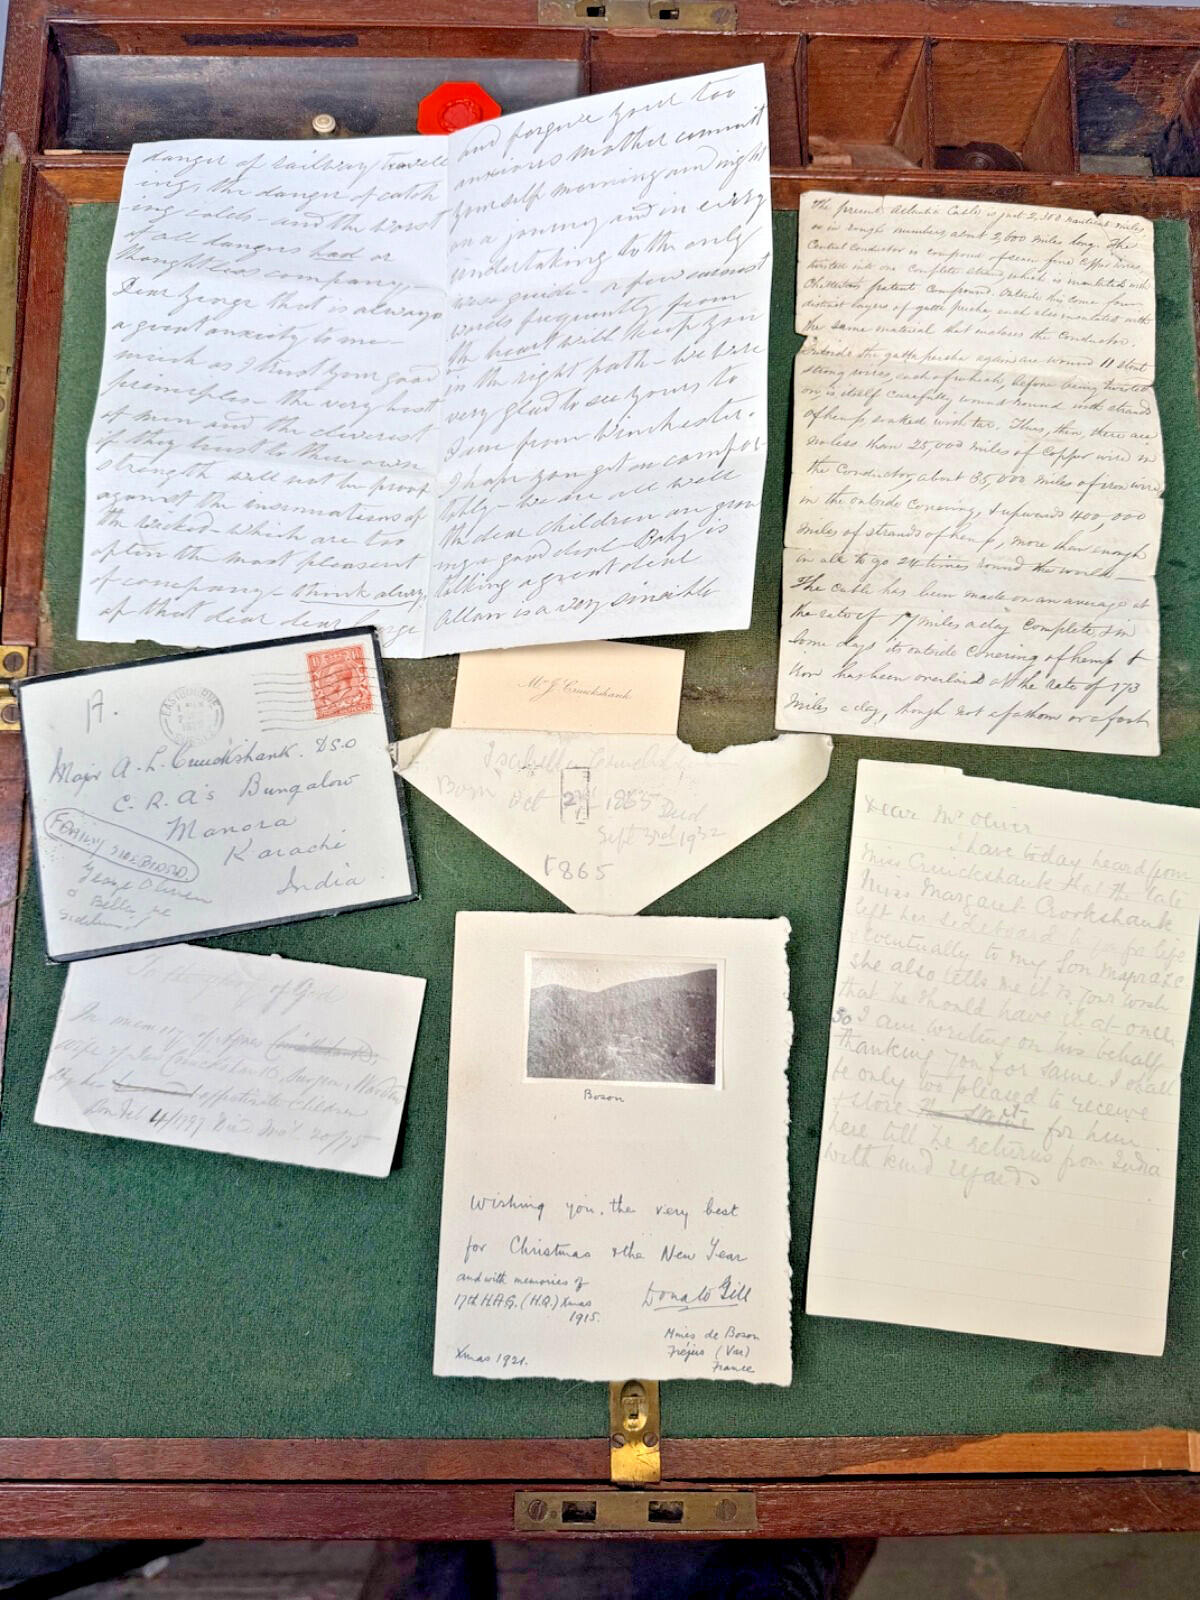 danger of railway travell
ing, the danger of catch
-ing colds - and the worst
of all dangers had or
thoughtless company,
Dear George that is always
a great anxiety to me -
much as I trust your good
principles - the very best
of men and the cleverest
if they trust to their own
strength will not be proof
against the insinuations of
the wicked - which are too
often the most pleasant
of company - think alway
of that dear dear George
and forgive your too
anxious mother commit
yourself morning and night
on a journey and in every
undertaking to the only
wise guide - a few earnest
words frequently from
the heart will keep you
in the right path - we were
very glad to see yours to
Jane from Winchester.
I hope you get on comfor-
tably - we are all well
the dear children are grow
ing a good deal - Baby is
talking a great deal
Allan is a very sensible
The present Atlantic Cable is just 2,300 nautical miles,
or in rough numbers about 2,600 miles long. The
Central Conductor is composed of seven fine Copper wires,
twisted into one complete strand, which is insulated with
Chatterton's patent Compound. Outside this come four
distinct layers of gutta percha, each also insulated with
the same material that encloses the Conductor.
Outside the gutta percha again are wound 11 stout
strong wires, each of which, before being twisted
on is itself carefully wound round with strands
of hemp soaked with tar. Thus, then, there are
no less than 25,000 miles of Copper wire in
the Conductor, about 35,000 miles of iron wire
in the outside covering, & upwards 400,000
miles of strands of hemp, more than enough
in all to go 24 times round the world -
The Cable has been made on an average at
the rate of 14 miles a day complete, & in
some days its outside covering of hemp &
iron has been overlaid at the rate of 173
miles a day, though not a fathom or a foot
A.
EASTBOURNE
Major A. L. Cruickshank. D.S.O
C. R. A's Bungalow
Manora
Karachi
India
FAMILY SIDEBOARD
George Oliver
Mr J. Cruickshank
Isabella Cruickshank
Born Oct 23rd 1865 Died
Sept 3rd 1932
1865
To the glory of God
In memory of Agnes Cruickshank,
Wife of Cruickshank, Surgeon,
by her affectionate Children
Born Feb 4/1797 Died 20/75
Boson
Wishing you, the very best
for Christmas & the New Year
and with memories of
17th H.A.G. (H.Q.) Xmas
1915.
Donato Gill
Mines de Boson
Fréjus (Var)
France
Xmas 1921.
Dear Mr Oliver
I have today heard from
Miss Cruickshank that the late
Miss Margaret Crookshank
left her sideboard to you for life
& eventually to my Son Major A.L.C
she also tells me it is your wish
that he should have it at once
So I am writing on his behalf
thanking you for same. I shall
be only too pleased to receive
& store for him
here till he returns from India
with kind regards